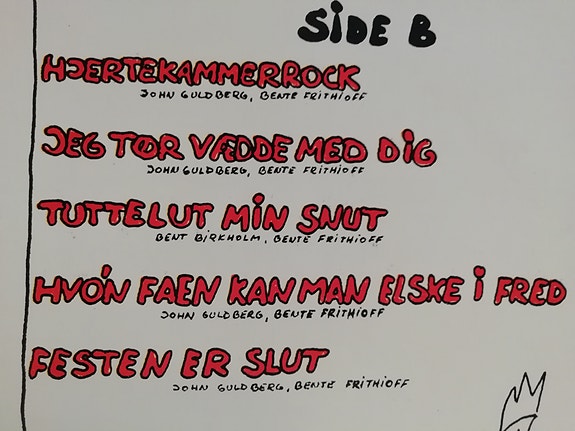 SiDE B
HJERTEKAMMERROCK
JOHN GULDBERG, BENTE FRITHIOFF
JEG TØR VÆDDE MED DiG
JOHN GULDBERG, BENTE FRITHIOFF
TUTTELUT MiN SNUT
BENT BIRKHOLM, BENTE FRITHIOFF
HVO'N FAEN KAN MAN ELSKE i FRED
JOHN GULDBERG, BENTE FRITHIOFF
FESTEN ER SLUT
JOHN GULDBERG, BENTE FRITHIOFF